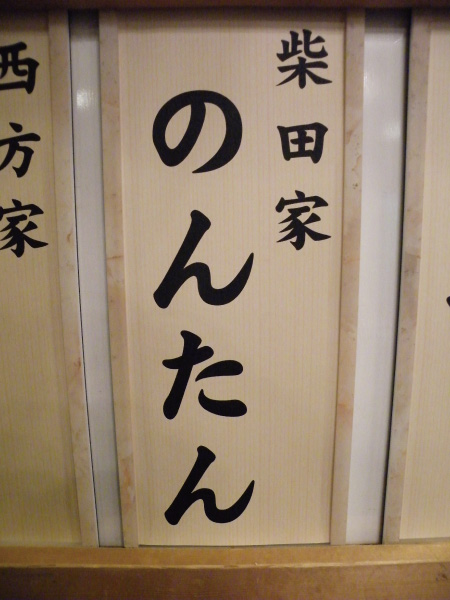 柴田家
のんたん
西方家